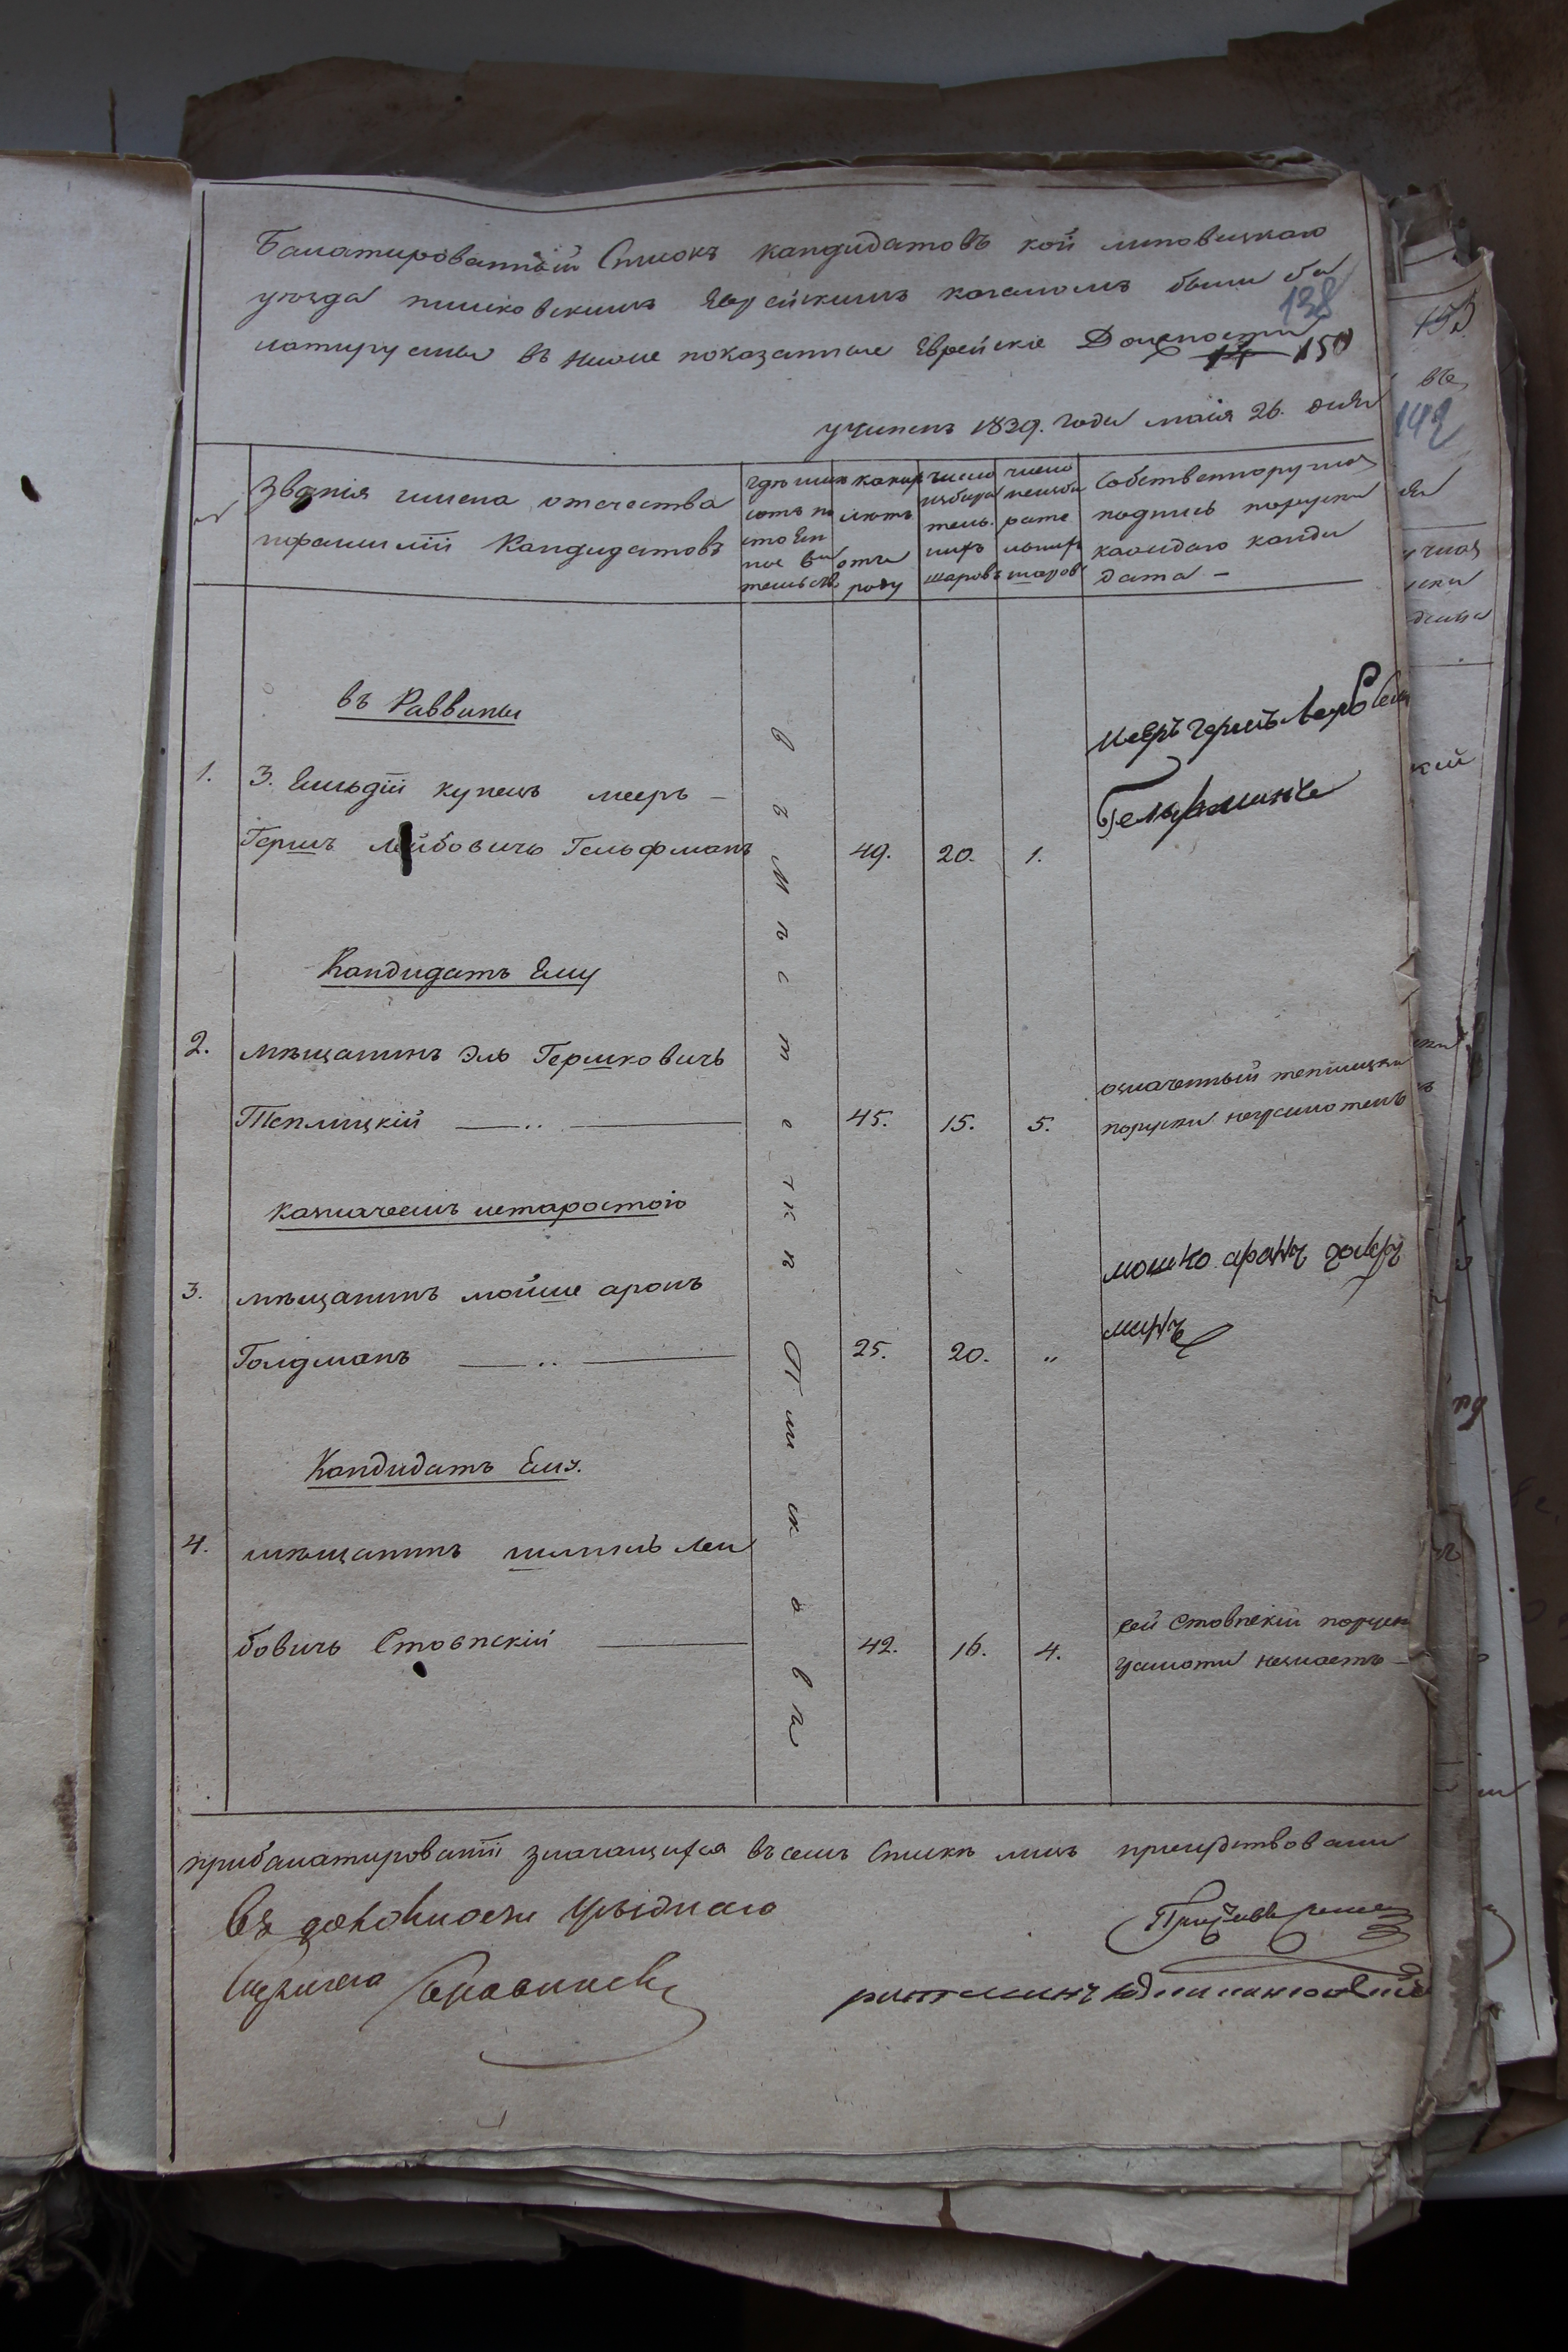 Балатированный Списокъ кандидатовъ кой липовецкаго
уезда писковскимъ Еврейскимъ кагаломъ были ба
138
латируемы въ ниже показанные Еврейскіе Должности
14 150
учиненъ 1839. года маія 26. дня
званія имена отечества
ифамиліи Кандидатовъ
гдѣ имѣ
ютъ по
стоЕн
ное жи
тельств
какихъ
лютъ
отъ
роду
число
избира
тель.
ныхъ
шаровъ
число
неизби
рате
льных
шаров
Собственноручная
подпись поруски
каждаго канди
дата —
въ Раввины
1. 3. Гильдіи купецъ мееръ —
Гершъ Лейбовичъ Гельфманъ 49. 20. 1.
мееръ гершъ
Гельфманъ
Кандидатъ Ему
2. мѣщанинъ Эль Гершковичъ
Теплицкій 45. 15. 5.
означенный теплицкій
поруски неграмотенъ
казначеемъ истаростою
3. мѣщанинъ мойше аронъ
Голдманъ 25. 20. „
мошко аронъ голд
манъ
Кандидатъ Ему.
4. мѣщанинъ Леи
бовичъ Стовпскій 42. 16. 4.
сей Стовпскій поруски
грамоти незнаетъ —
въ Мѣстечкѣ Писковѣ
прибалатированіи значащихся въсемъ Спискѣ лицъ присудствовали
Въ должности уѣзднаго